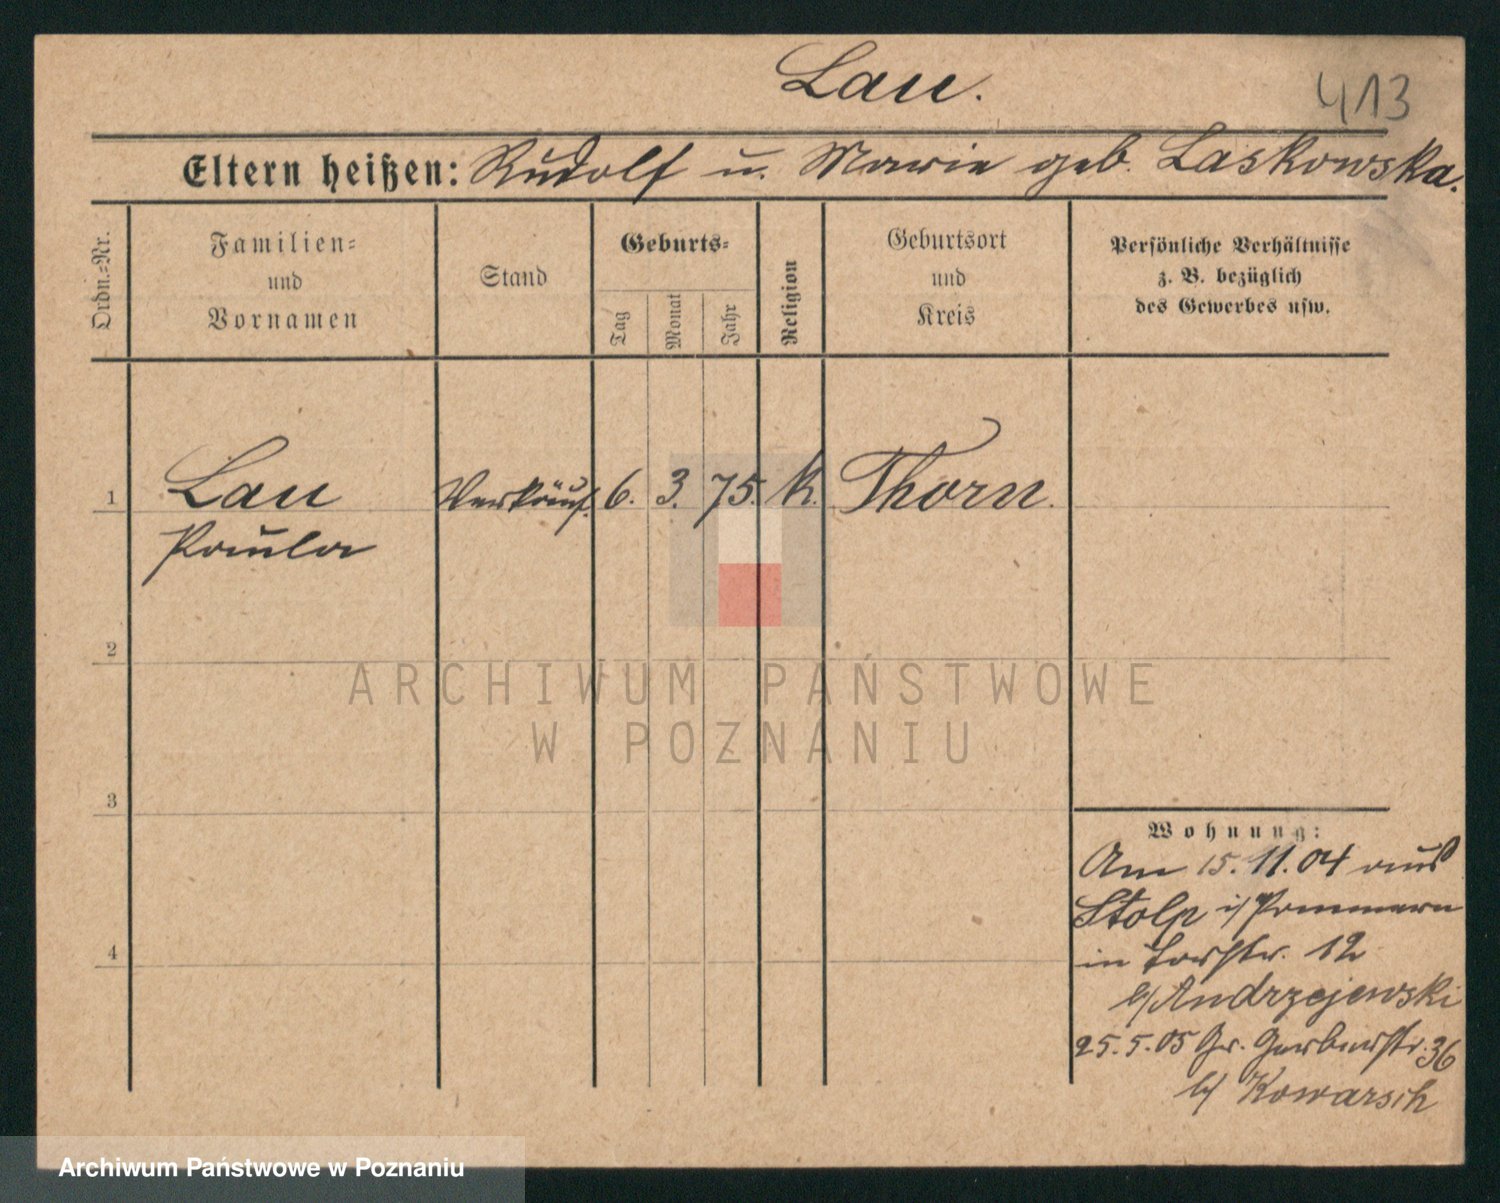 Lau.
413
Eltern heißen: Rudolf u. Marie geb. Laskowska.
Ordn.=Nr.
Familien=
und
Vornamen
Stand
Geburts=
Tag
Monat
Jahr
Religion
Geburtsort
und
Kreis
Persönliche Verhältnisse
z. B. bezüglich
des Gewerbes usw.
1 Lau Verkäuf. 6. 3. 75. k. Thorn.
Paula
2
3
4
Wohnung:
Am 15.11.04 aus
Stolp i/Pommern
in 12
b/Andrzejewski
25.5.05 Gr. Gerberstr. 36
b/ Kowarsch
ARCHIWUM PAŃSTWOWE
W POZNANIU
Archiwum Państwowe w Poznaniu